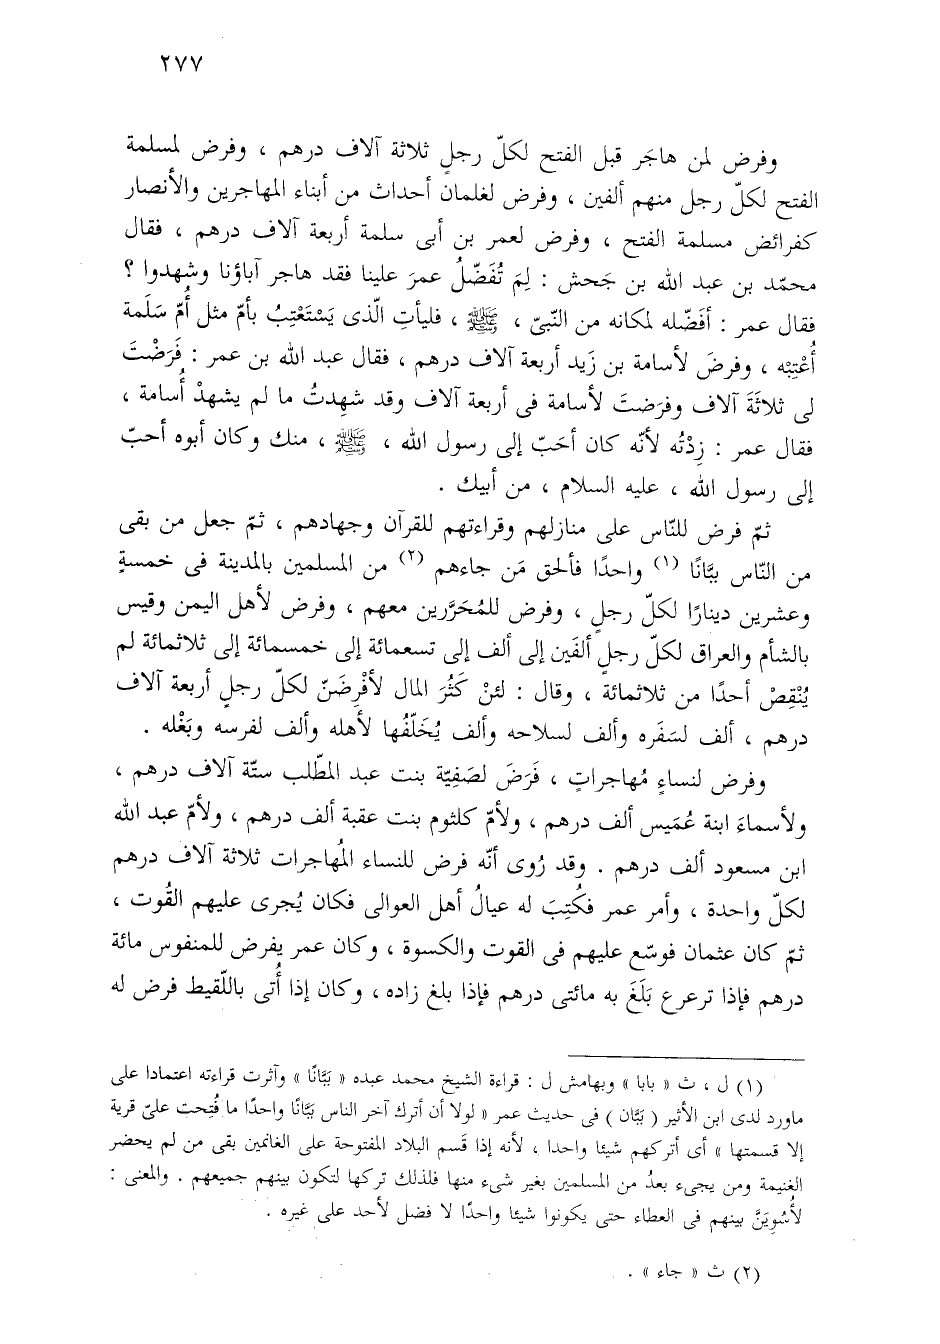 ٢٧٧
وفرض لمن هاجَر قبل الفتح لكلّ رجلٍ ثلاثة آلاف درهم ، وفرض لمسلمة
الفتح لكلّ رجل منهم ألفين ، وفرض لغلمان أحداث من أبناء المهاجرين والأنصار
كفرائض مسلمة الفتح ، وفرض لعمر بن أبى سلمة أربعة آلاف درهم ، فقال
محمّد بن عبد الله بن جَحش : لِمَ تُفَضّلُ عمرَ علينا فقد هاجر آباؤنا وشهدوا ؟
فقال عمر : أفَضّله لمكانه من النّبىّ ، ﷺ ، فليأتِ الّذى يَسْتَعْتِبُ بأمّ مثل أُمّ سَلَمة
أُعْتِبْه ، وفرضَ لأسامة بن زَيد أربعة آلاف درهم ، فقال عبد الله بن عمر : فَرَضْتَ
لى ثلاثَةَ آلاف وفرَضتَ لأسامة فى أربعة آلاف وقد شهِدتُ ما لم يشهدْ أُسامة ،
فقال عمر : زِدْتُه لأنّه كان أحَبّ إلى رسول الله ، ﷺ ، منك وكان أبوه أحبّ
إلى رسول الله ، عليه السلام ، من أبيك .
ثمّ فرض للنّاس على منازلهم وقراءتهم للقرآن وجهادهم ، ثمّ جعل من بقى
من النّاس ببّانًا (١) واحدًا فألحق مَن جاءهم (٢) من المسلمين بالمدينة فى خمسةٍ
وعشرين دينارًا لكلّ رجلٍ ، وفرض للمُحَرَّرين معهم ، وفرض لأهل اليمن وقيس
بالشأم والعراق لكلّ رجلٍ ألفَين إلى ألف إلى تسعمائة إلى خمسمائة إلى ثلاثمائة لم
يُنْقِصْ أحدًا من ثلاثمائة ، وقال : لئنْ كَثُرَ المال لأفْرِضَنّ لكلّ رجلٍ أربعة آلاف
درهم ، ألف لسَفَره وألف لسلاحه وألف يُخَلّفُها لأهله وألف لفرسه وبَغْله .
وفرض لنساءٍ مُهاجراتٍ ، فَرَضَ لصَفِيّة بنت عبد المطّلب ستّة آلاف درهم ،
ولأسماءَ ابنة عُمَيس ألف درهم ، ولأمّ كلثوم بنت عقبة ألف درهم ، ولأمّ عبد الله
ابن مسعود ألف درهم . وقد رُوى أنّه فرض للنساء المُهاجرات ثلاثة آلاف درهم
لكلّ واحدة ، وأمر عمر فكُتِبَ له عيالُ أهل العوالى فكان يُجرى عليهم القُوت ،
ثمّ كان عثمان فوسّع عليهم فى القوت والكسوة ، وكان عمر يفرض للمنفوس مائة
درهم فإذا ترعرع بَلَغَ به مائتى درهم فإذا بلغ زاده ، وكان إذا أُتى باللّقيط فرض له
(١) ل ، ث « بابا » وبهامش ل : قراءة الشيخ محمد عبده « بَبَّانًا » وآثرت قراءته اعتمادا على
ماورد لدى ابن الأثير ( بَبَّان ) فى حديث عمر « لولا أن أترك آخر الناس بَبَّانًا واحدًا ما فُتِحت علىّ قرية
إلا قسمتها » أى أتركهم شيئا واحدا ، لأنه إذا قَسم البلاد المفتوحة على الغانمين بقى من لم يحضر
الغنيمة ومن يجىء بعدُ من المسلمين بغير شىء منها فلذلك تركها لتكون بينهم جميعهم . والمعنى :
لأُسَوِيَنَّ بينهم فى العطاء حتى يكونوا شيئا واحدًا لا فضل لأحد على غيره .
(٢) ث « جاء » .